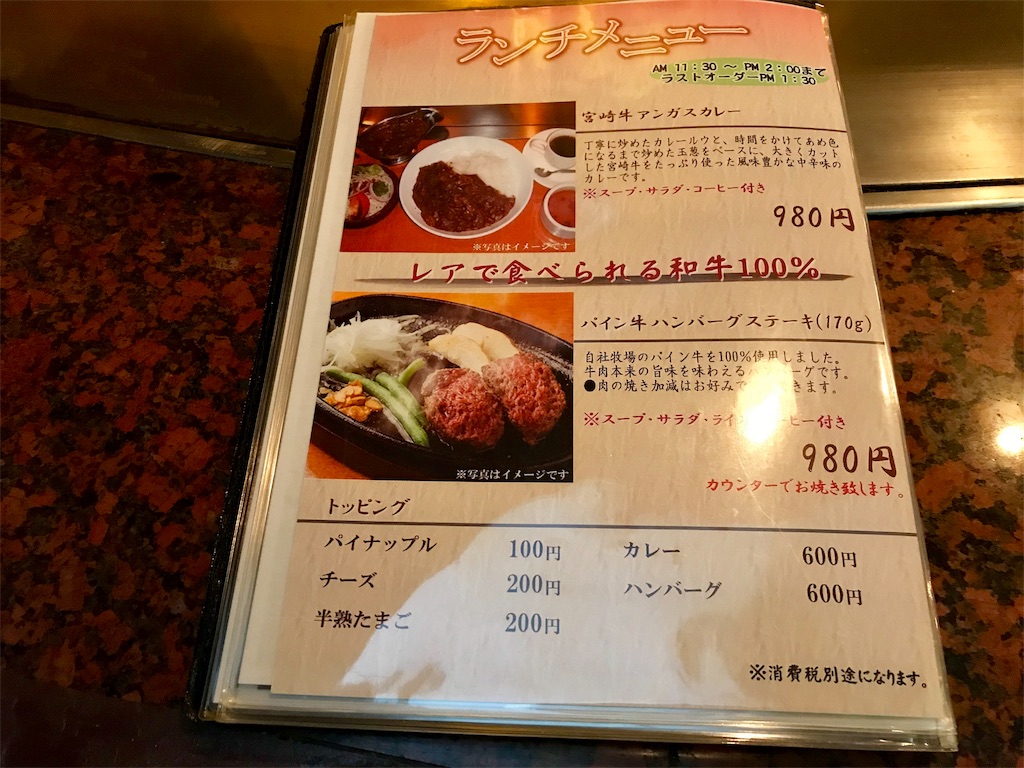 ランチメニュー
AM 11:30 ～ PM 2:00まで
ラストオーダーPM 1:30
宮崎牛アンガスカレー
丁寧に炒めたカレールウと、時間をかけてあめ色
になるまで炒めた玉葱をベースに、大きくカット
した宮崎牛をたっぷり使った風味豊かな中辛味の
カレーです。
※スープ・サラダ・コーヒー付き
980円
※写真はイメージです
レアで食べられる和牛100%
パイン牛ハンバーグステーキ(170g)
自社牧場のパイン牛を100%使用しました。
牛肉本来の旨味を味わえるハンバーグです。
●肉の焼き加減はお好みで きます。
※スープ・サラダ・ライ ヒー付き
980円
カウンターでお焼き致します。
※写真はイメージです
トッピング
パイナップル 100円 カレー 600円
チーズ 200円 ハンバーグ 600円
半熟たまご 200円
※消費税別途になります。